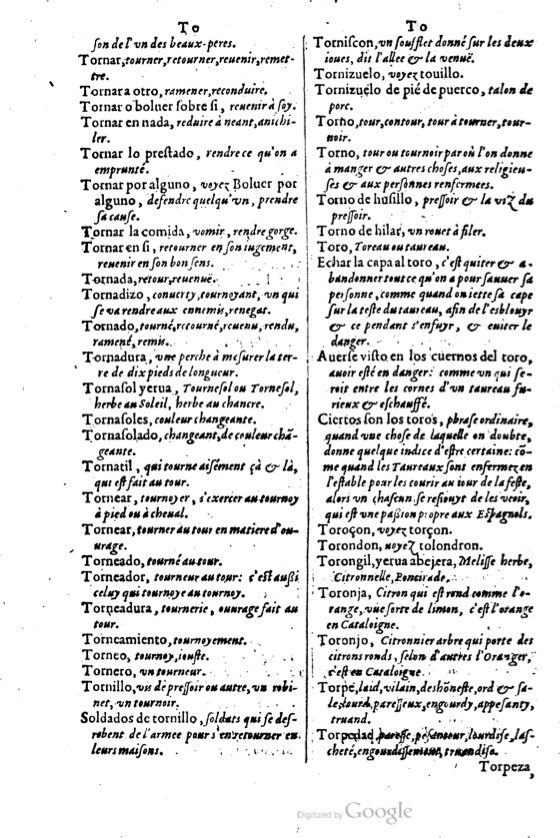 To
son de l'vn des beaux-peres.
Tornar, tourner, retourner, reuenir, remet-
tre.
Tornar a otro, ramener, reconduire.
Tornar o boluer sobre si, reuenir à soy.
Tornar en nada, reduire à neant, anichi-
ler.
Tornar lo prestado, rendre ce qu'on a
emprunté.
Tornar por alguno, voyez Boluer por
alguno, defendre quelqu'vn, prendre
sa cause.
Tornar la comida, vomir, rendre gorge.
Tornar en si, retourner en son iugement,
reuenir en son bon sens.
Tornada, retour, reuenuë.
Tornadizo, conuerty, tournoyant, vn qui
se va rendre aux ennemis, renegat.
Tornado, tourné, retourné, reuenu, rendu,
ramené, remis.
Tornadura, vne perche à mesurer la ter-
re de dix pieds de longueur.
Tornasol yerua, Tournesol ou Tornesol,
herbe au Soleil, herbe au chancre.
Tornasoles, couleur changeante.
Tornasolado, changeant, de couleur chā-
geante.
Tornatil, qui tourne aisément çà & là,
qui est fait au tour.
Tornear, tournoyer, s'exercer au tournoy
à pied ou à cheual.
Tornear, tourner au tour en matiere d'ou-
urage.
Torneado, tourné au tour.
Torneador, tourneur au tour: c'est aussi
celuy qui tournoye au tournoy.
Torneadura, tournerie, ouurage fait au
tour.
Torneamiento, tournoyement.
Torneo, tournoy, iouste.
Tornero, vn tourneur.
Tornillo, vis de pressoir ou autre, vn robi-
net, vn tournoir.
Soldados de tornillo, soldats qui se des-
robent de l'armee pour s'en retourner en
leurs maisons.
To
Torniscon, vn soufflet donné sur les deux
ioues, dit l'allee & la venuë.
Tornizuelo, voyez touillo.
Tornizuelo de pié de puerco, talon de
porc.
Torno, tour, contour, tour à tourner, tour-
noir.
Torno, tour ou tournoir par où l'on donne
à manger & autres choses, aux religieu-
ses & aux personnes renfermees.
Torno de husillo, pressoir & la viz du
pressoir.
Torno de hilar, vn rouet à filer.
Toro, Toreau ou taureau.
Echar la capa al toro, c'est quiter & a-
bandonner tout ce qu'on a pour sauuer sa
personne, comme quand on iette sa cape
sur la teste du taureau, afin de l'esblouyr
& ce pendant s'enfuyr, & euiter le
danger.
Auerse visto en los cuernos del toro,
auoir esté en danger: comme vn qui se-
roit entre les cornes d'vn taureau fu-
rieux & eschauffé.
Ciertos son los toros, phrase ordinaire,
quand vne chose de laquelle on doubte,
donne quelque indice d'estre certaine: cō-
me quand les Taureaux sont enfermez en
l'estable pour les courir au iour de la feste,
alors vn chascun se resiouyt de les veoir,
qui est vne passion propre aux Espagnols.
Toroçon, voyez torçon.
Torondon, voyez tolondron.
Torongil, yerua abejera, Melisse herbe,
Citronnelle, Poncirade.
Toronja, Citron qui est rond comme l'o-
range, vne sorte de limon, c'est l'orange
en Cataloigne.
Toronjo, Citronnier arbre qui porte des
citrons ronds, selon d'autres l'Oranger,
c'est en Cataloigne.
Torpe, laid, vilain, deshōneste, ord & sa-
le, lourd, paresseux, engourdy, appesanty,
truand.
Torpedad, paresse, pesanteur, lourdise, las-
cheté, engourdissement, truandise.
Torpeza,
Digitized by Google